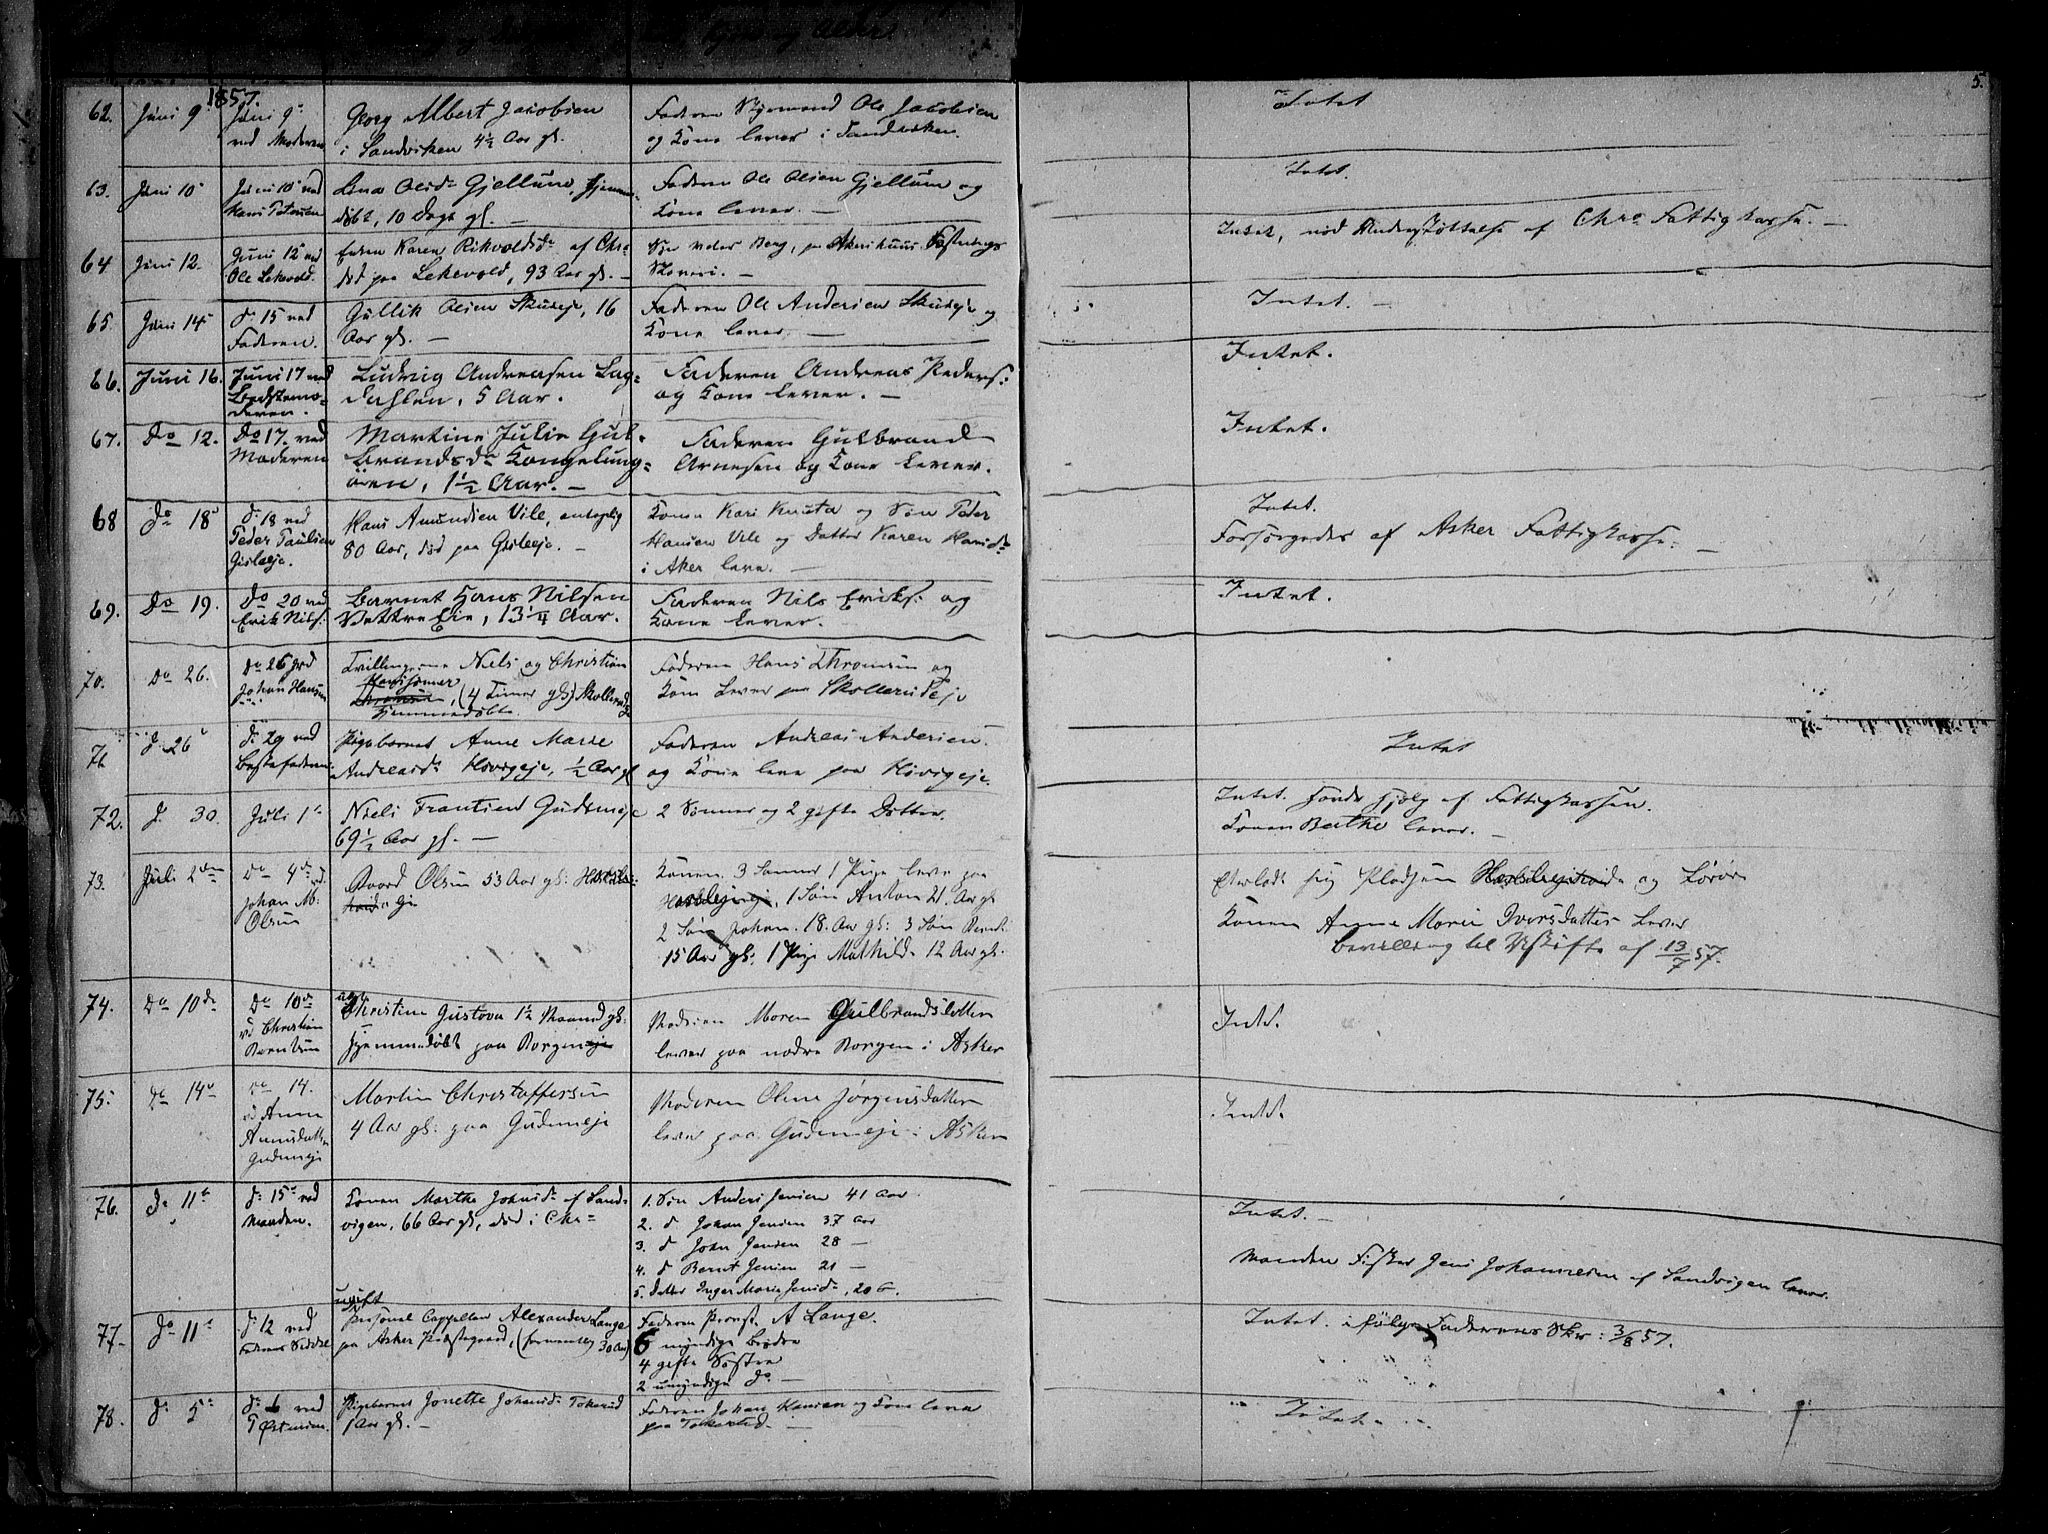 1857.
5.
62. Juni 9. Juni 9 ved Moderen
Georg Albert Jacobsen i Sandviken 4½ Aar gl.
Faderen Ole Jacobsen og Kone lever i Sandviken.
Intet
63. Juni 10 Juni 10 ved Hans Petersen
Olsd. Gjellum, hjemmedøbt, 10 Dage gl. —
Faderen Ole Olsen Gjellum og Kone lever. —
Intet.
64 Juni 12. Juni 12 ved Ole Lekevold.
Enken Karen af Chr. død paa Lekevold, 93 Aar gl. —
Søn Peder Berg, paa Akershuus Fæstnings Slaveri. —
Intet, nød Understøttelse af Chra Fattigkasse. —
65 Juni 14 d. 15 ved Faderen.
Gullik Olsen 16 Aar gl. —
Faderen Ole Andersen og Kone lever. —
Intet. —
66. Juni 16. Juni 17 ved Bedstemoderen.
Ludvig Andreasen Lagdahlen, 5 Aar.
Faderen Andreas Peders: og Kone lever. —
Intet.
67. Do 12. Do 17. ved Moderen
Martine Julie Gulbrandsdr Kongelungøen, 1½ Aar. —
Faderen Gulbrand Arnesen og Kone lever.
Intet.
68 do 18 d. 18 ved Peder Paulsen Gisleeje.
Hans Amundsen Vile, antagelig 80 Aar, død paa Gisleeje. —
Konen Kari Knutsd. og Søn Peder Hansen Vile og Datter Karen Hansd. i Aker leve. —
Intet.
Forsørgedes af Asker Fattigkasse. —
69. Do 19. Do 20 ved Erik Nils.
Barnet Hans Nilsen Vettre Eie, 13¼ Aar.
Faderen Nils Eriks. og Kone lever.
Intet.
70. Do 26. Do 26 ved Johan Hansen
Tvillingerne Niels og Christian Hanssønner, (4 Timer gl.) hjemmedøbte
Faderen Hans Thronsen og Kone lever paa Skollerudeje
71 d. 26 d. 29 ved Bestefaderen
Pigebarnet Anne Marie Andreasd. Hovigeje, ½ Aar gl
Faderen Andreas Andersen og Kone leve paa Hovigeje.
Intet
72. d. 30. Juli 1
Niels Frantsen Gudemeje 69½ Aar gl. —
2 Sønner og 2 gifte Døttre.
Intet. Havde Hjelp af Fattigkassen.
Konen Berthe lever. —
73. Juli 2den Do 4de ved Johan M. Olsen
Olsen 53 Aar gl:
Konen 3 Sønner 1 Pige leve paa
1 Søn Anton 21 Aar gl
2 Søn Johan. 18. Aar gl: 3 Søn Bernt.
15 Aar gl. 1 Pige Mathilde 12 Aar gl.
Efterlod sig Pladsen og Løsøre
Konen Anne Marie Iversdatter Lever
Bevilling til Uskifte af 13/7 57.
74. Do 10de Do 10de ved Christian Berntsen
Christine Gustava 1½ Maaned gl: hjemmedøbt paa Borgen
Moderen Maren Gulbrandsdatter lever paa nedre Borgen i Asker
Intet.
75. Do 14de do 14. ved Anne Gudemeje
Martin Christoffersen 4 Aar gl: paa Gudemeje
Moderen Oline Jørgensdatter lever paa Gudemeje i Asker
Intet.
76. d. 11 d. 15 ved Manden.
Konen Marthe Johnsd. af Sandvigen, 66 Aar gl, død i Chr.
1. Søn Anders Jensen 41 Aar.
2. d Johan Jensen 37 Aar
3. d John Jensen 28 —
4. d Bernt Jensen 21 —
5. Datter Inger Marie Jensd., 20 6.
Intet. —
Manden Fisker Jens Johannesen af Sandvigen lever.
77. do 11 d 12 ved
ugift
Personel Cappellan Alexander Lange paa Asker Præstegaard, (30 Aar)
Faderen Provst A Lange.
6 myndige Brødre
4 gifte Søstre
2 umyndige do —
Intet. ifølge Faderens Skr: 3/8 57.
78. d. 5 d. 6 ved
Pigebarnet Jonette Johansd. Tokerud 1 Aar gl. —
Faderen Johan Hansen og Kone leve paa Tokerud. —
Intet.